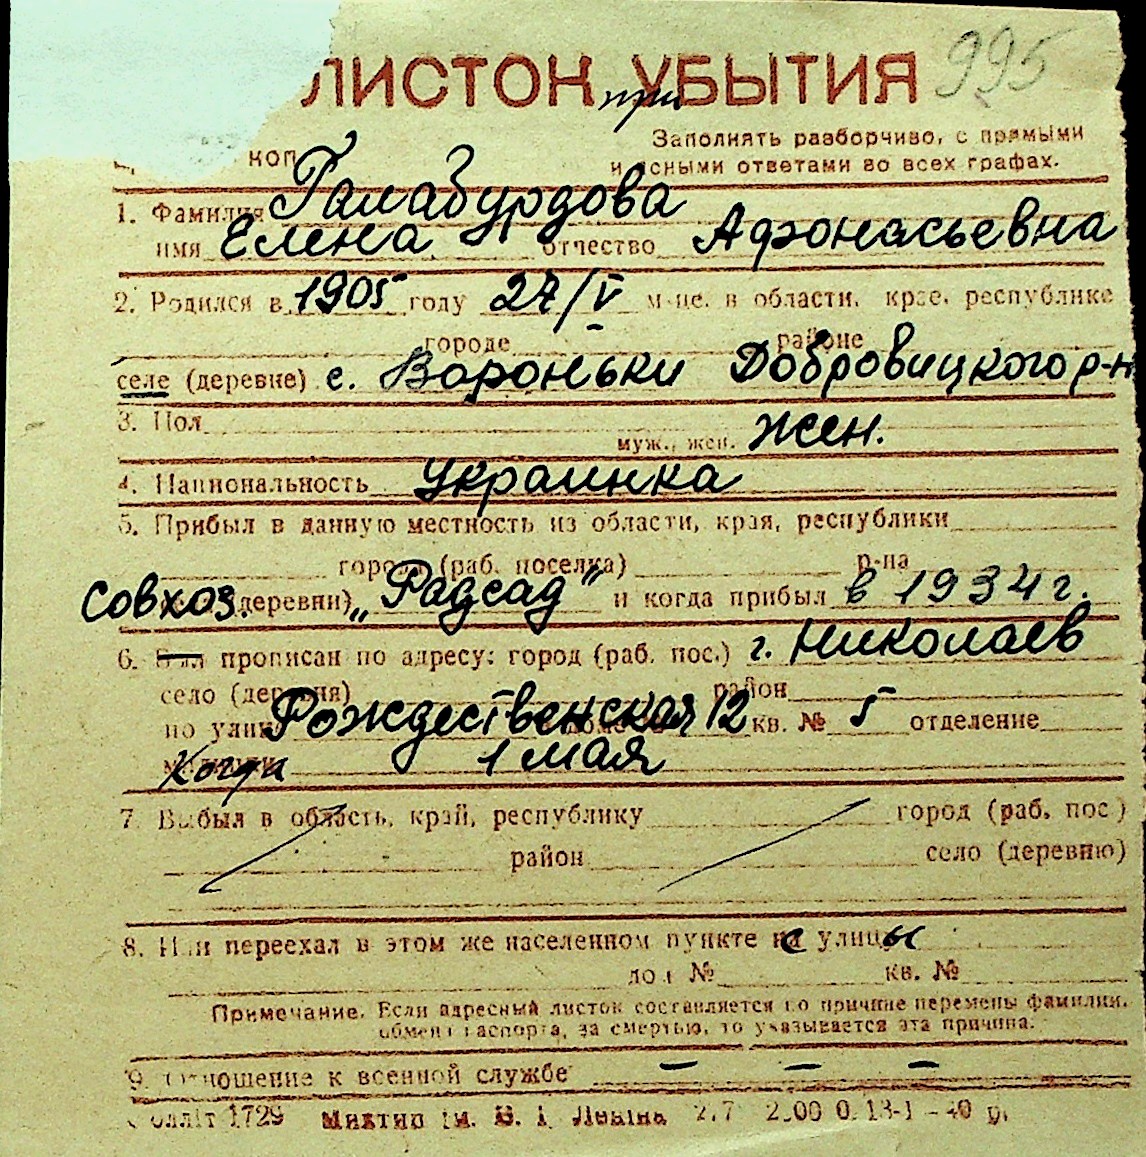 995
ЛИСТОК при УБЫТИЯ
Заполнять разборчиво, с прямыми
коп и ясными ответами во всех графах.
1. Фамилия Галабурдова
имя Елена отчество Афонасьевна
2. Родился в 1905 году 27/V м-це, в области, крае, республике
городе районе
селе (деревне) с. Вороньки Добровицкого р-н
3. Пол муж., жен. жен.
4. Национальность украинка
5. Прибыл в данную местность из области, края, республики
города (раб. поселка) р-на
совхоз. (деревни) „Радсад" и когда прибыл в 1934 г.
6. Был прописан по адресу: город (раб. пос.) г. Николаев
село (деревня) район
по улице Рождественская 12 кв. № 5 отделение
Когда 1 мая
7. Выбыл в область, край, республику город (раб. пос.)
район село (деревню)
8. Или переехал в этом же населенном пункте с улицы
дом № кв. №
Примечание. Если адресный листок составляется по причине перемены фамилии,
обмена паспорта, за смертью, то указывается эта причина.
9. Отношение к военной службе – – –
1729 40 р.